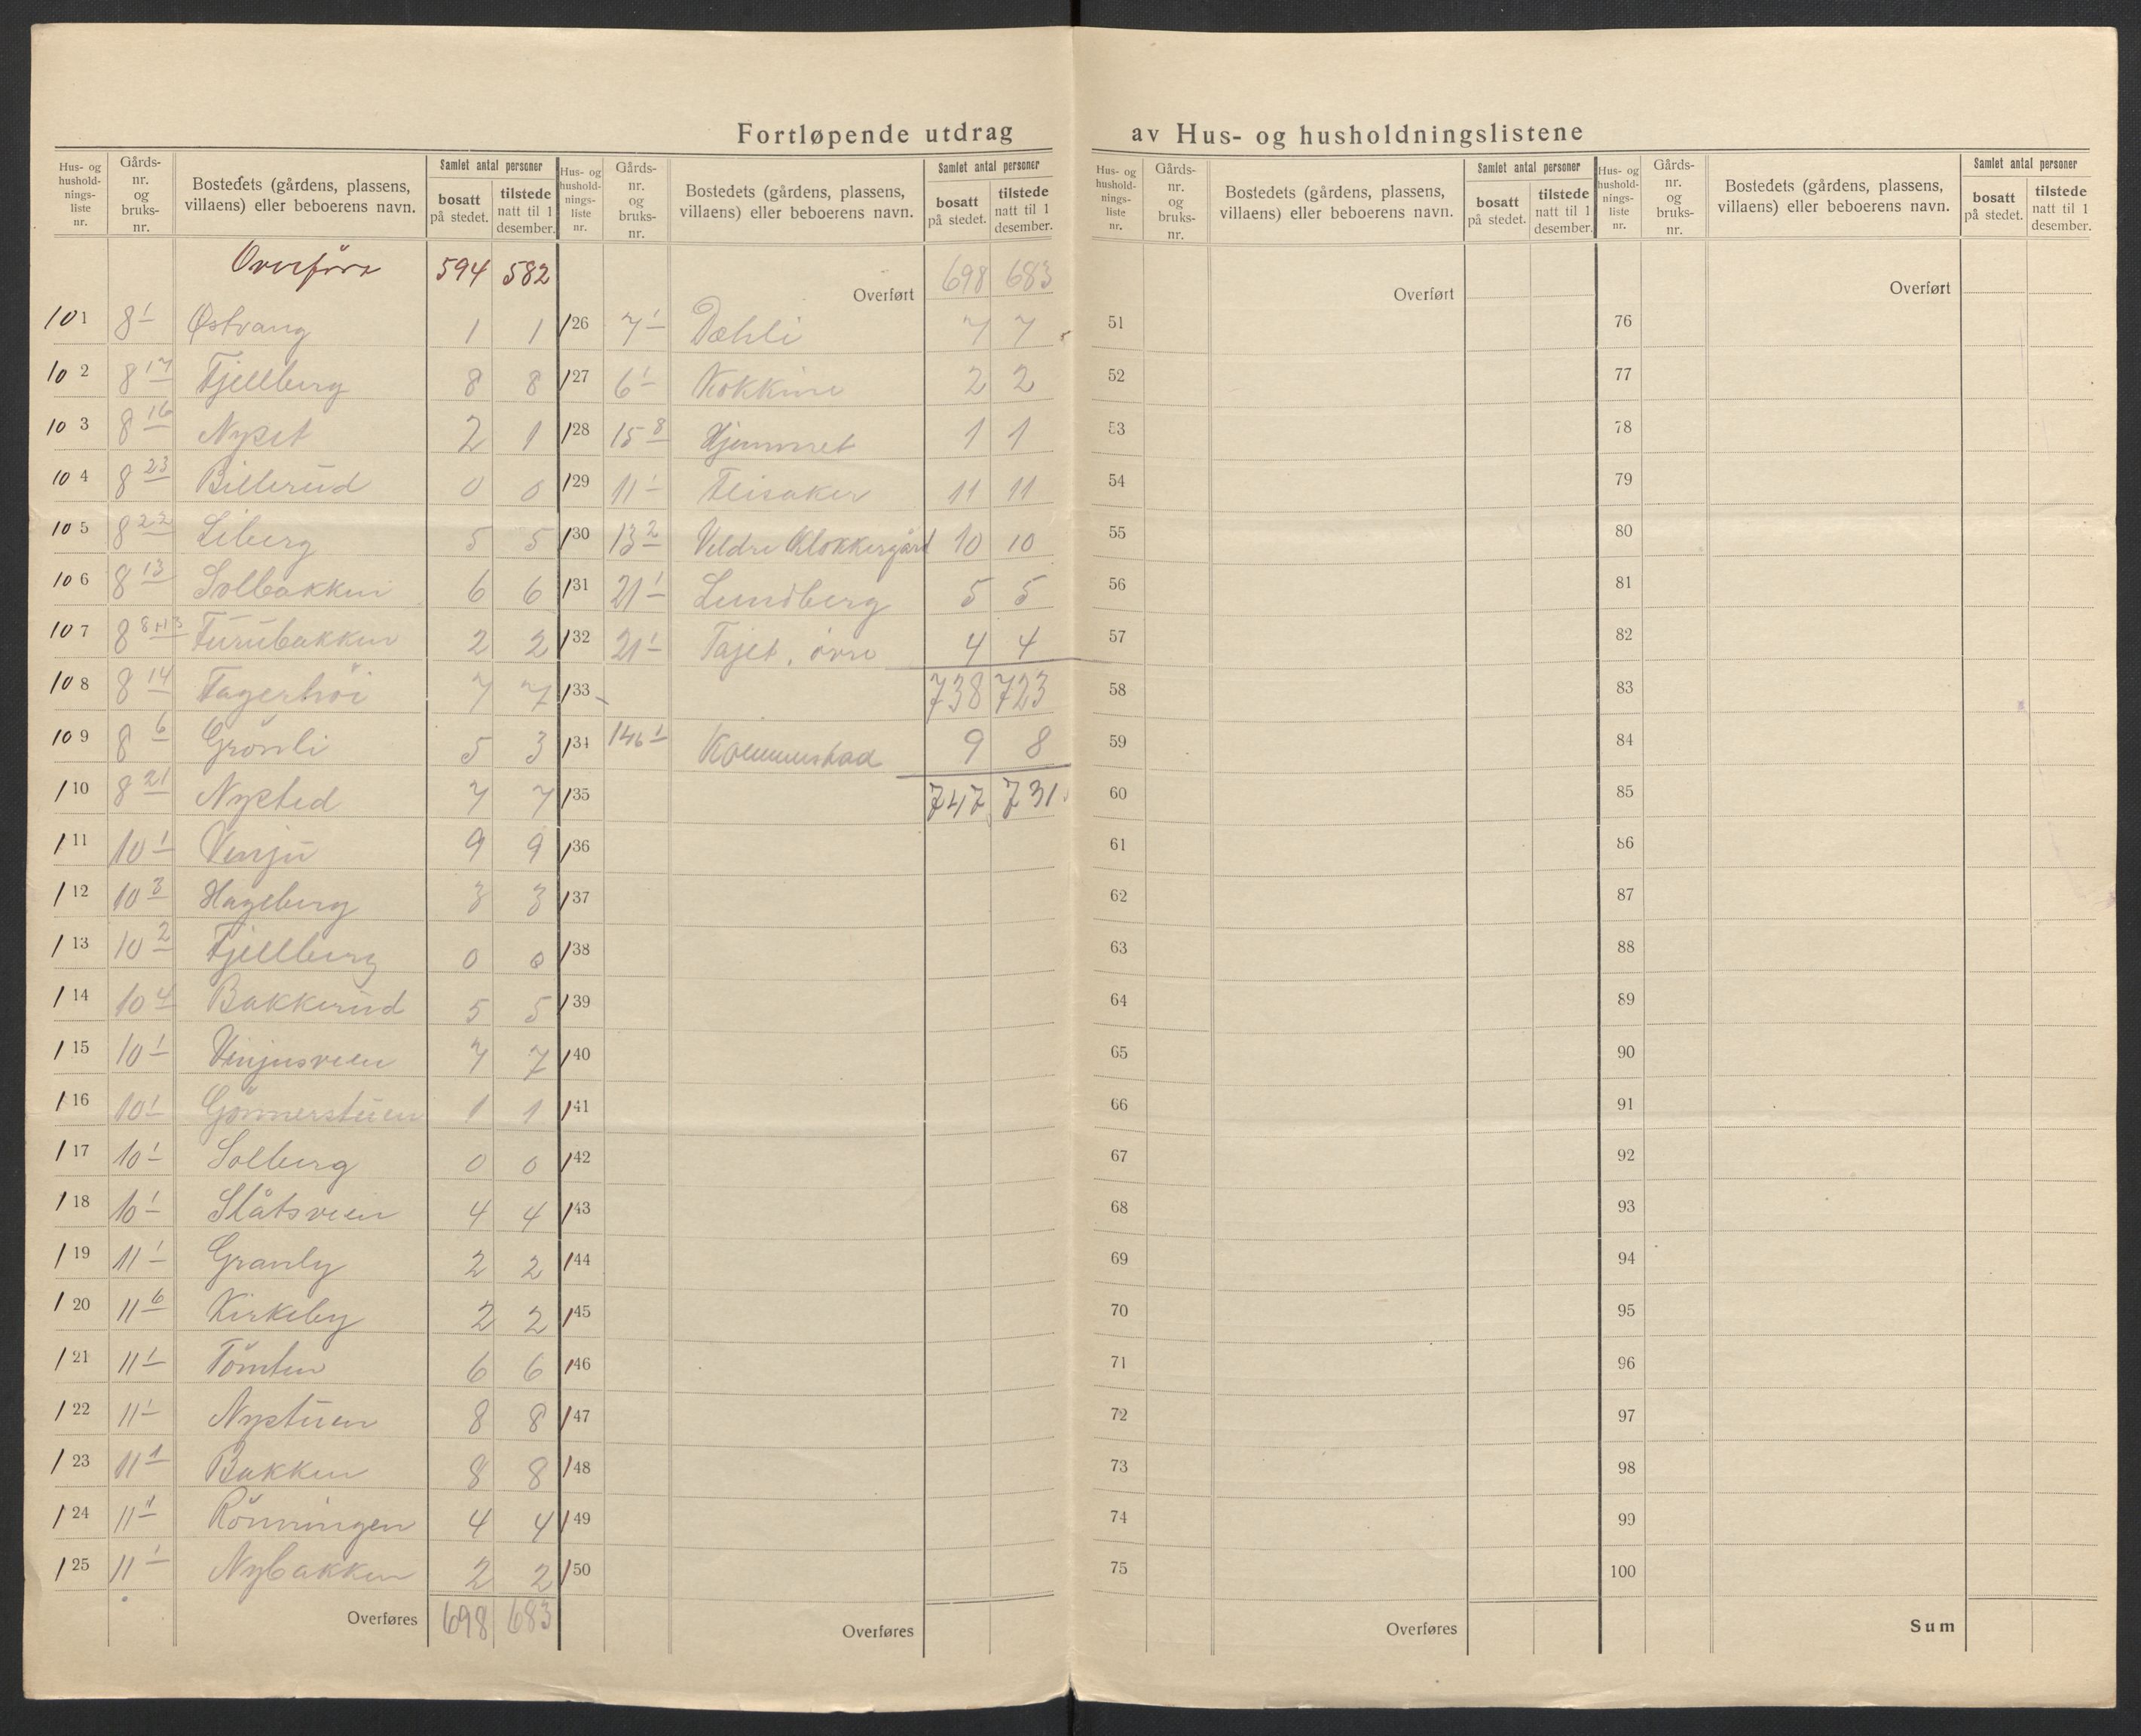 Fortløpende utdrag av Hus- og husholdningslistene
Hus- og hushold- nings- liste nr. | Gårds- nr. og bruks- nr. | Bostedets (gårdens, plassens, villaens) eller beboerens navn. | Samlet antal personer bosatt på stedet. | tilstede natt til 1 desember.
Overføre 594 582
101 8 1 Østvang 1 1
102 8 17 Fjellberg 8 8
103 8 16 Nyset 2 1
104 8 23 Billerud 0 0
105 8 22 Liberg 5 5
106 8 13 Solbakken 6 6
107 8 8+13 Furubakken 2 2
108 8 14 Fagerhöi 7 7
109 8 6 Grönli 5 3
110 8 21 Nysted 7 7
111 10 1 Vinju 9 9
112 10 3 Hageberg 3 3
113 10 2 Fjellberg 0 0
114 10 4 Bakkerud 5 5
115 10 1 Vinjusveen 7 7
116 10 1 Gönnerstuen 1 1
117 10 1 Solberg 0 0
118 10 1 Slåtsveen 4 4
119 11 1 Granly 2 2
120 11 6 Kirkeby 2 2
121 11 1 Tömten 6 6
122 11 1 Nystuen 8 8
123 11 1 Bakken 8 8
124 11 1 Rönningen 4 4
125 11 1 Nybakken 2 2
Overføres 698 683
Hus- og hushold- nings- liste nr. | Gårds- nr. og bruks- nr. | Bostedets (gårdens, plassens, villaens) eller beboerens navn. | Samlet antal personer bosatt på stedet. | tilstede natt til 1 desember.
Overført 698 683
126 7 1 Dæhli 7 7
127 6 1 Kokkine 2 2
128 15 8 Hjemmet 1 1
129 11 1 Flisaker 11 11
130 13 2 Veldre Klokkergård 10 10
131 21 1 Lundberg 5 5
132 21 1 Tajet, övre 4 4
133 738 723
134 146 1 Kommerstad 9 8
135 747 731
136
137
138
139
140
141
142
143
144
145
146
147
148
149
150
Overføres
Hus- og hushold- nings- liste nr. | Gårds- nr. og bruks- nr. | Bostedets (gårdens, plassens, villaens) eller beboerens navn. | Samlet antal personer bosatt på stedet. | tilstede natt til 1 desember.
Overført
51
52
53
54
55
56
57
58
59
60
61
62
63
64
65
66
67
68
69
70
71
72
73
74
75
Overføres
Hus- og hushold- nings- liste nr. | Gårds- nr. og bruks- nr. | Bostedets (gårdens, plassens, villaens) eller beboerens navn. | Samlet antal personer bosatt på stedet. | tilstede natt til 1 desember.
Overført
76
77
78
79
80
81
82
83
84
85
86
87
88
89
90
91
92
93
94
95
96
97
98
99
100
Sum